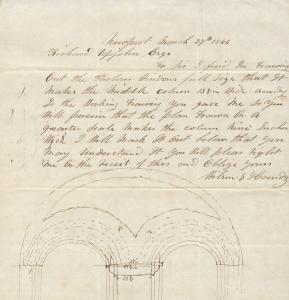 Newport March 27th 1844
Richard Upjohn Esqr
Dr Sir I find In Drawing
Out the Parlour Windows full Size that It
makes the Middle column 13½ in Wide according
To the Working Drawing you gave me So you
Will perceive that the plan Drawn On a
quarter Scale makes the column Nine Inches
Wide I Will Mark It Out below that you
May understand It You Will please Wright
me On the receit of this and Oblige Yours